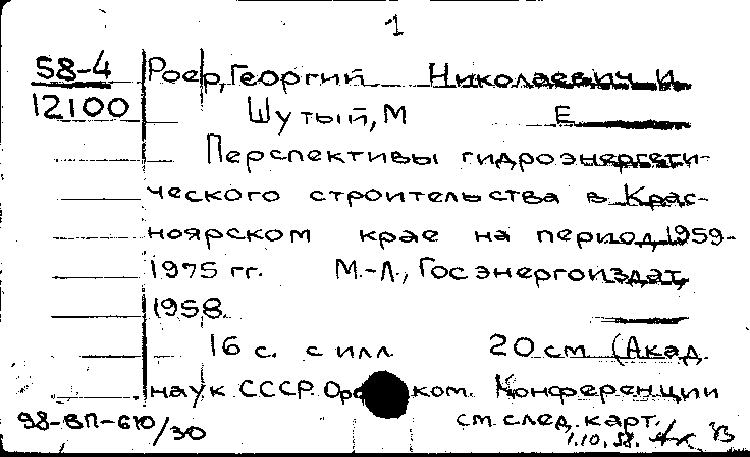 1
58-4 Роер, Георгий Николаевич и
12100 Шутый, М Е
Перспективы гидроэнергети-
ческого строительства в Крас-
ноярском крае на период 1959-
1975 гг. М.-Л., Госэнергоиздат,
1958.
16 с. с илл 20 см (Акад.
наук СССР. ком. Конференции
98-ВП-610/30 см. след. карт.
1.10.58.